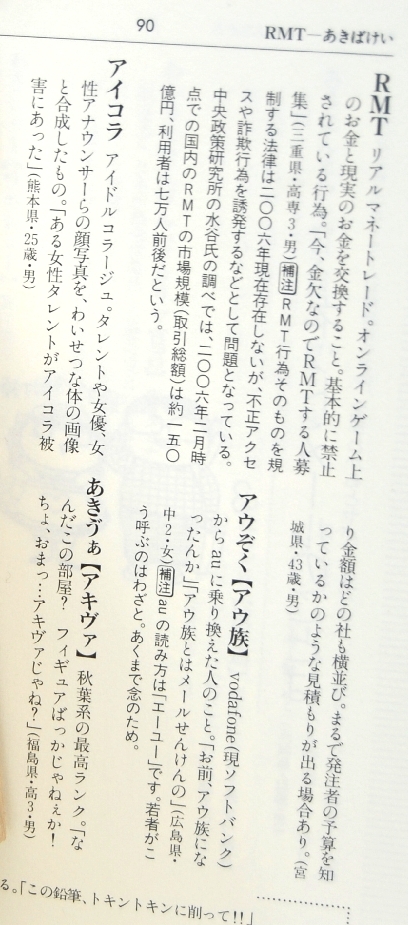 90
RMT―あきばけい
RMT リアルマネートレード。オンラインゲーム上
のお金と現実のお金を交換すること。基本的に禁止
されている行為。「今、金欠なのでRMTする人募
集」(三重県・高専3・男) 補注 RMT行為そのものを規
制する法律は二〇〇六年現在存在しないが、不正アクセ
スや詐欺行為を誘発するなどとして問題となっている。
中央政策研究所の水谷氏の調べでは、二〇〇六年二月時
点での国内のRMTの市場規模(取引総額)は約一五〇
億円、利用者は七万人前後だという。
アイコラ アイドルコラージュ。タレントや女優、女
性アナウンサーらの顔写真を、わいせつな体の画像
と合成したもの。「ある女性タレントがアイコラ被
害にあった」(熊本県・25歳・男)
り金額はどの社も横並び。まるで発注者の予算を知
っているかのような見積もりが出る場合あり。(宮
城県・43歳・男)
アウぞく【アウ族】 vodafone(現ソフトバンク)
からauに乗り換えた人のこと。「お前、アウ族にな
ったんか」「アウ族とはメールせんけんの」(広島県・
中2・女) 補注 auの読み方は「エーユー」です。若者がこ
う呼ぶのはわざと。あくまで念のため。
あきゔぁ【アキヴァ】 秋葉系の最高ランク。「な
んだこの部屋? フィギュアばっかじゃねぇか!
ちょ、おまっ…アキヴァじゃね?」(福島県・高3・男)
る。「この鉛筆、トキントキンに削って!!」